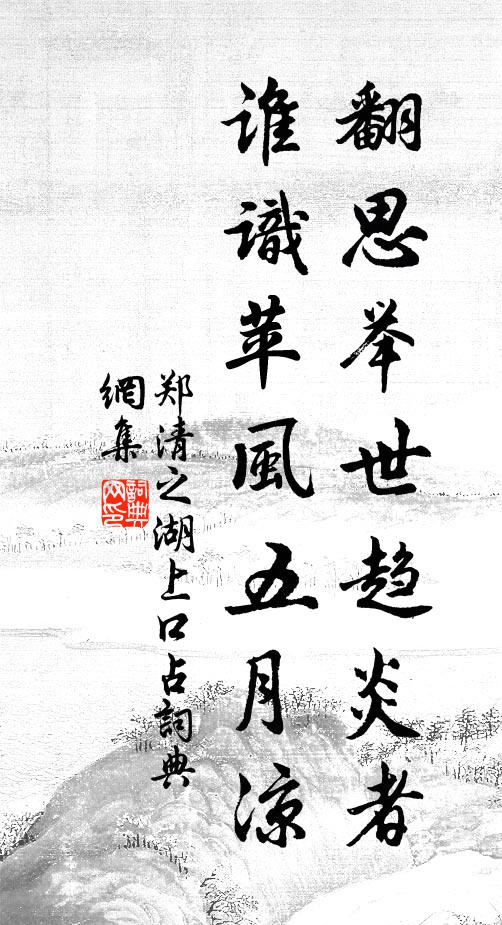 翻思举世趋炎者
谁識苹風五月凉
郑清之湖上口占詞典
網集
詞典
网印